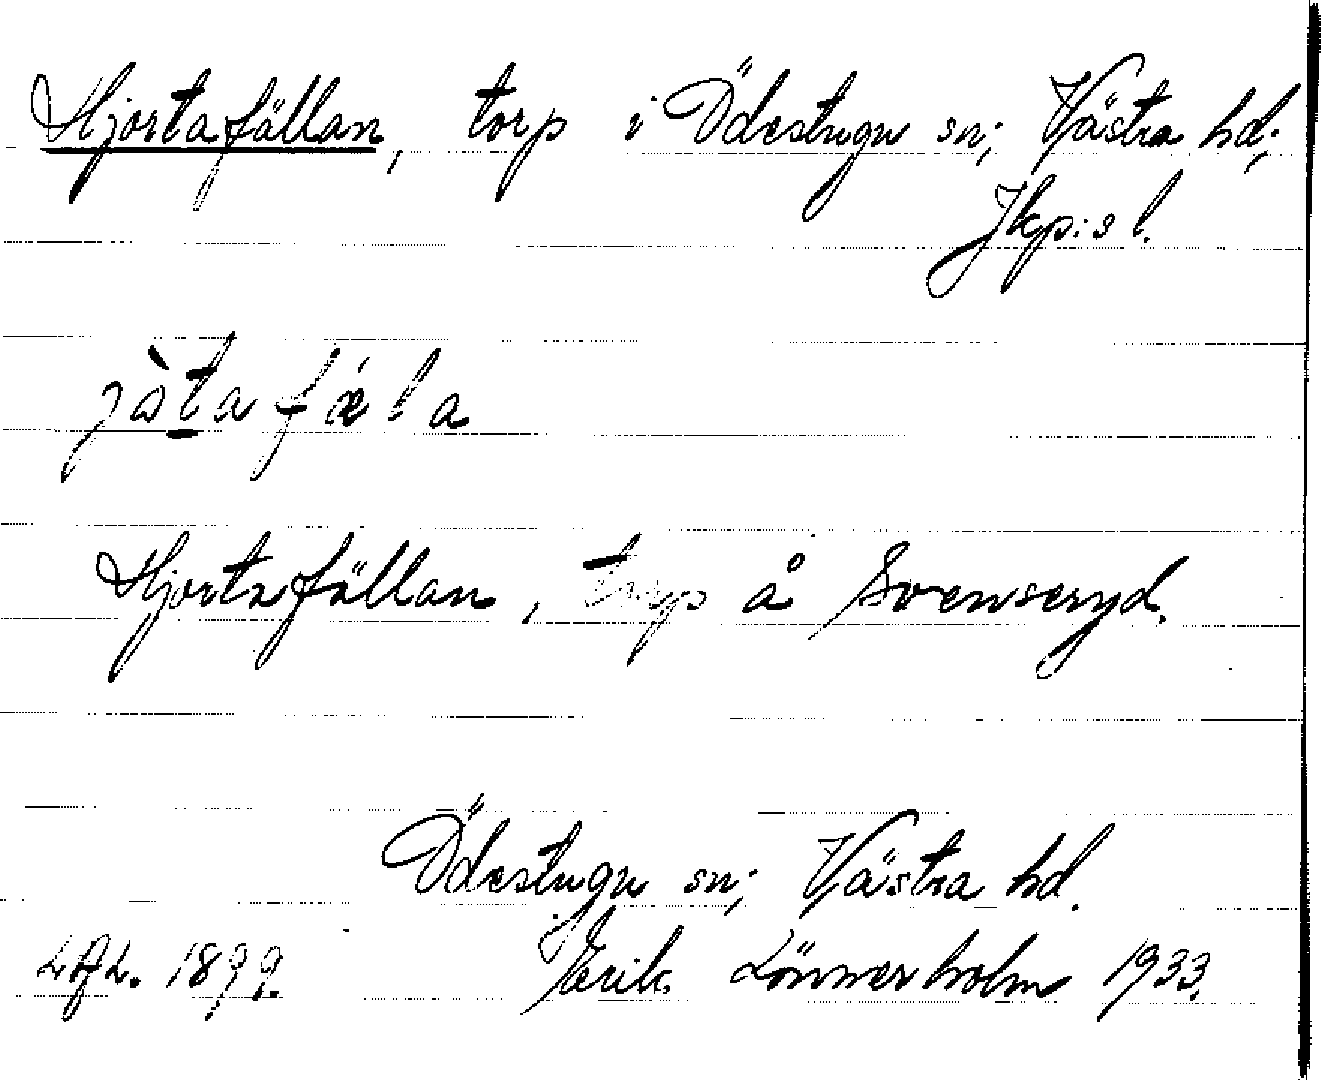 Hjortafällan, torp i Ödestugu sn; Västra hd;
Jkp:s l.
jò̀ta fǽla
Hjortafällan, torp å Svenseryd.
Ödestugu sn; Västra hd.
1899. Erik Lönnerholm 1933.